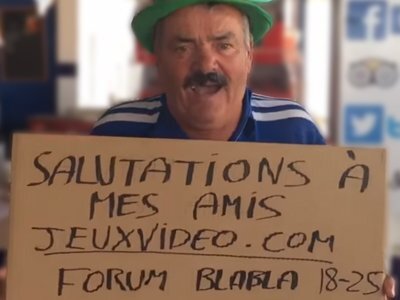 SALUTATIONS À
MES AMIS
JEUXVIDEO.COM
FORUM BLABLA 18-25